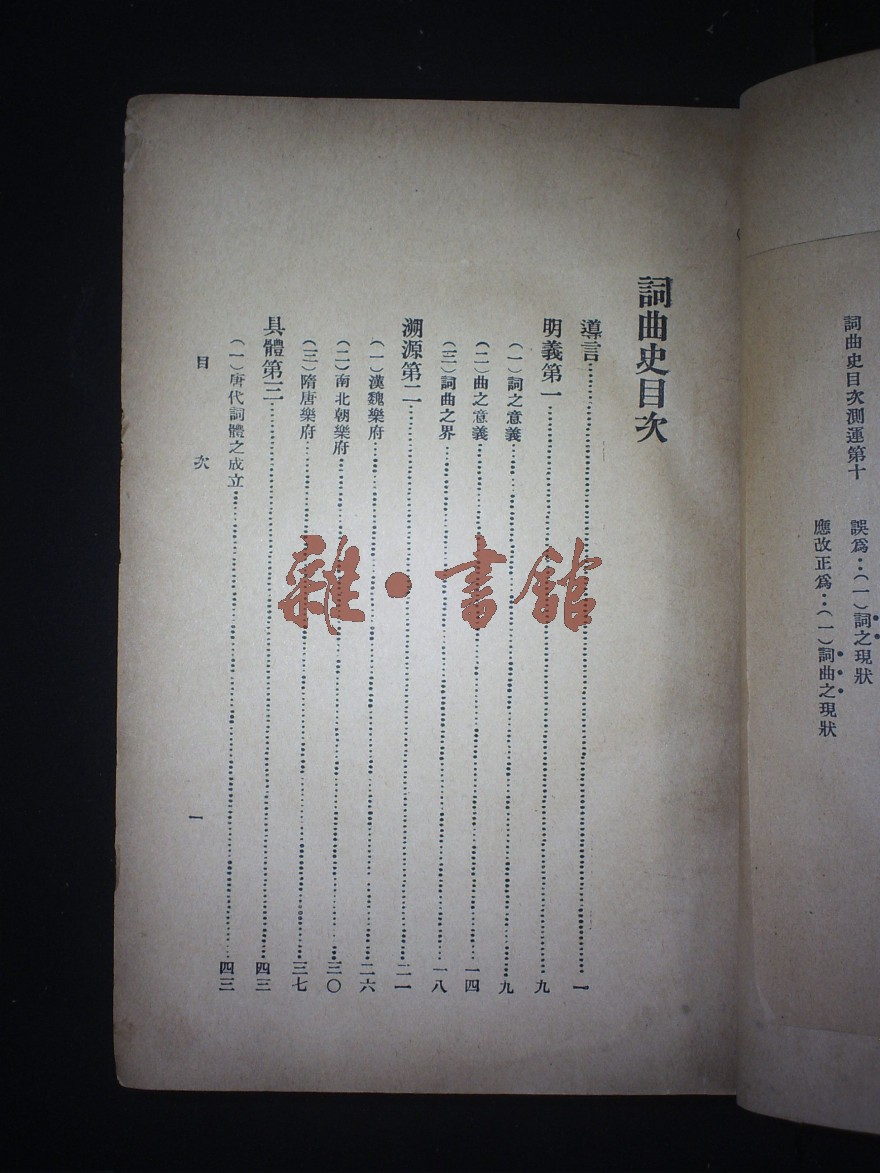 詞曲史目次測運第十
誤爲：（一）詞之現狀
應改正爲：（一）詞曲之現狀
詞曲史目次
導言……一
明義第一……九
（一）詞之意義……九
（二）曲之意義……一四
（三）詞曲之界……一八
溯源第二……二一
（一）漢魏樂府……二六
（二）南北朝樂府……三〇
（三）隋唐樂府……三七
具體第三……四三
（一）唐代詞體之成立……四三
目次 一
雜·書館